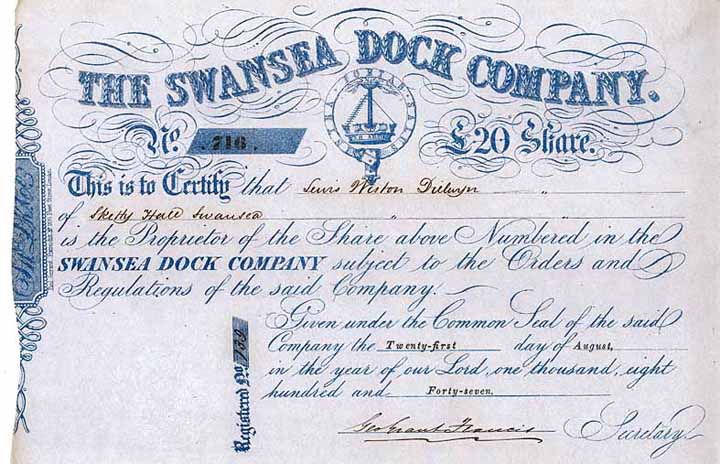 THE SWANSEA DOCK COMPANY.
No. 716. £20 Share.
This is to Certify that Lewis Weston Dillwyn
of Sketty Hall Swansea
is the Proprietor of the Share above Numbered in the
SWANSEA DOCK COMPANY subject to the Orders and
Regulations of the said Company.
Given under the Common Seal of the said
Company the Twenty-first day of August,
in the year of our Lord, one thousand, eight
hundred and Forty-seven.
Registered No.
Geo Grant Francis Secretary.